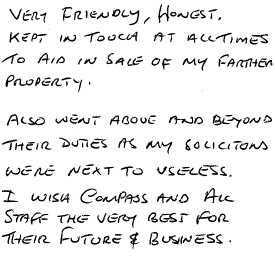 VERY FRIENDLY, HONEST.
KEPT IN TOUCH AT ALL TIMES
TO AID IN SALE OF MY FARTHER
PROPERTY.
ALSO WENT ABOVE AND BEYOND
THEIR DUTIES AS MY SOLICITONS
WERE NEXT TO USELESS.
I WISH COMPASS AND ALL
STAFF THE VERY BEST FOR
THEIR FUTURE & BUSINESS.